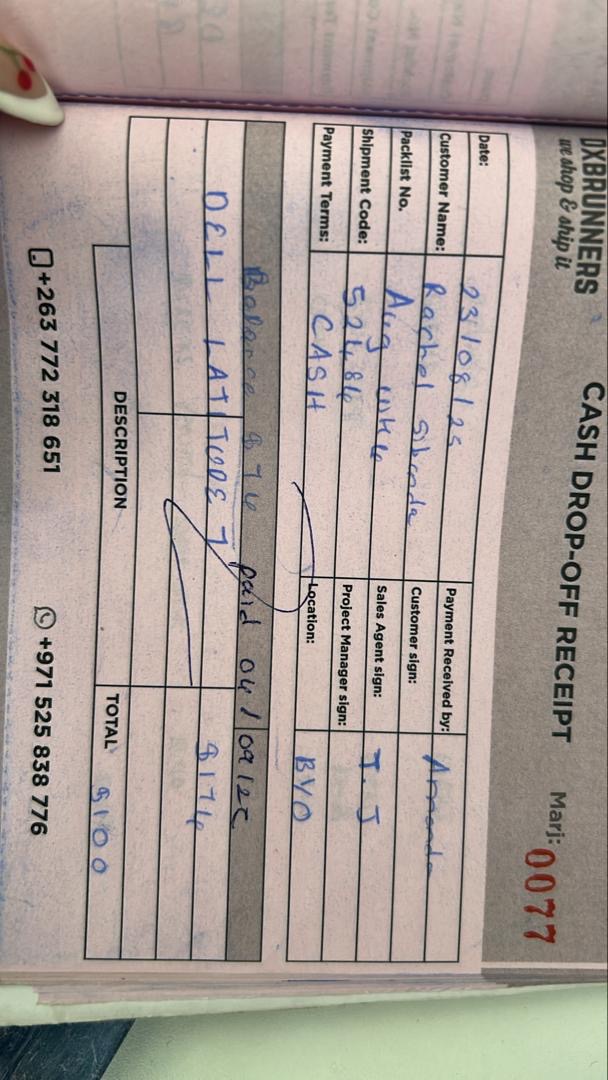 DXBRUNNERS
we shop & ship it
CASH DROP-OFF RECEIPT
Marj: 0077
Date: 23/08/25
Customer Name: Rachel Sibanda
Payment Received by: Amanda
Packlist No. Aug WK4
Customer sign:
Shipment Code: 52486
Sales Agent sign: T.J
Payment Terms: CASH
Project Manager sign:
Location: BYO
Balance $76 paid 04/09/25
DELL LATITUDE 7 $176
DESCRIPTION TOTAL $100
+263 772 318 651 +971 525 838 776